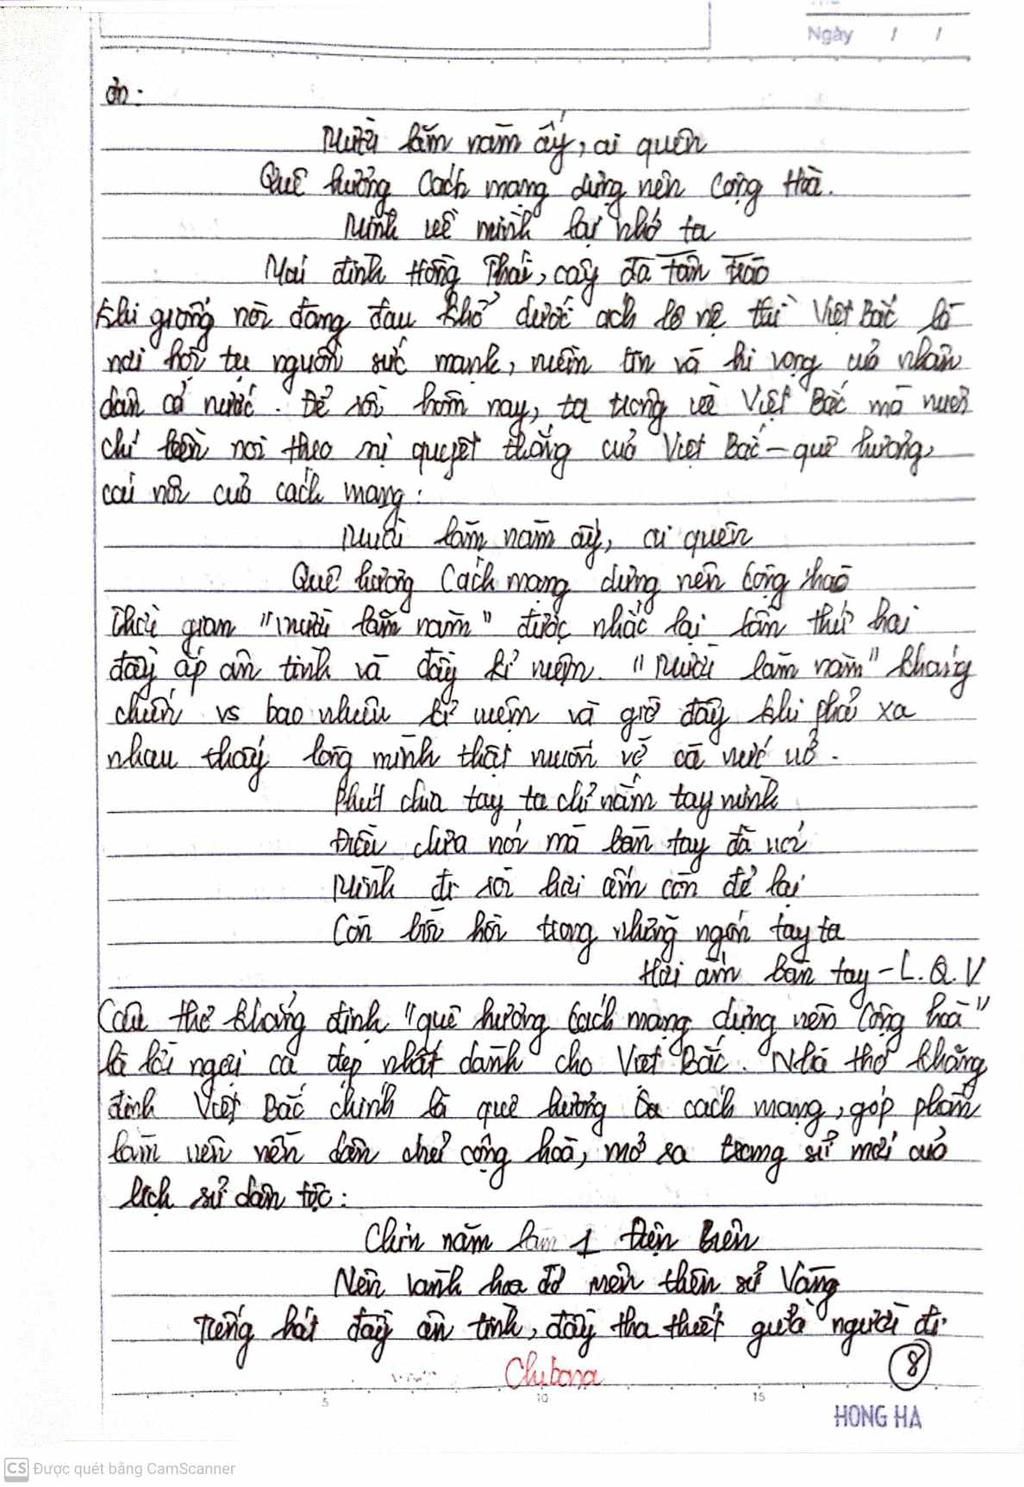 Ngày / /
ơn:
Mười lăm năm ấy, ai quên
Quê hương Cách mạng dựng nên Cộng Hòa.
Mình về mình lại nhớ ta
Mái đình Hồng Thái, cây đa Tân Trào
Khi giống nòi đang đau khổ dưới ách nô lệ thì Việt Bắc là
nơi hội tụ nguồn sức mạnh, niềm tin và hi vọng của nhân
dân cả nước. Để rồi hôm nay, ta trông về Việt Bắc mà nuôi
chí bền noi theo sự quyết thắng của Việt Bắc - quê hương,
cái nôi của cách mạng:
Mười lăm năm ấy, ai quên
Quê hương Cách mạng dựng nên Cộng hoà
Thời gian "mười lăm năm" được nhắc lại lần thứ hai
đầy ắp ân tình và đầy kỉ niệm. "Mười lăm năm" kháng
chiến vs bao nhiêu kỉ niệm và giờ đây khi phải xa
nhau thấy lòng mình thật muốn vỡ cả nước
Phút chia tay ta chỉ nắm tay mình
Điều chưa nói mà bàn tay đã nói
Mình đi rồi hơi ấm còn để lại
Còn bồi hồi trong những ngón tay ta
Hơi ấm bàn tay - L.Q.V
Câu thơ khẳng định "quê hương Cách mạng dựng nên Cộng hoà"
là lời ngợi ca đẹp nhất dành cho Việt Bắc. Nhà thơ khẳng
định Việt Bắc chính là quê hương cách mạng, góp phần
làm nên nền dân chủ cộng hoà, mở ra trang sử mới của
lịch sử dân tộc:
Chín năm làm 1 Điện Biên
Nên vành hoa đỏ nên thiên sử Vàng
Tiếng hát đầy ân tình, đầy tha thiết giữa người đi
Chubona
8
5 10 15
HONG HA
CS Được quét bằng CamScanner